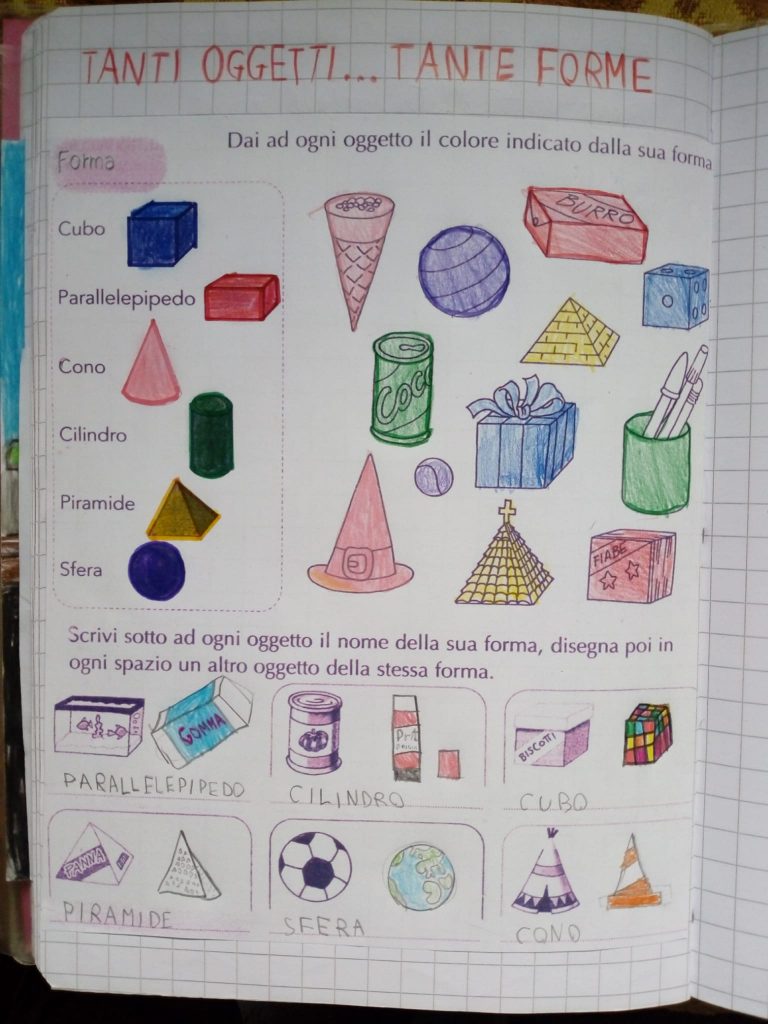 TANTI OGGETTI... TANTE FORME
Dai ad ogni oggetto il colore indicato dalla sua forma
Forma
Cubo
Parallelepipedo
Cono
Cilindro
Piramide
Sfera
BURRO
COCA
FIABE
Scrivi sotto ad ogni oggetto il nome della sua forma, disegna poi in
ogni spazio un altro oggetto della stessa forma.
GOMMA
PARALLELEPIPEDO
Prit
CILINDRO
BISCOTTI
CUBO
PANNA
PIRAMIDE
SFERA
CONO